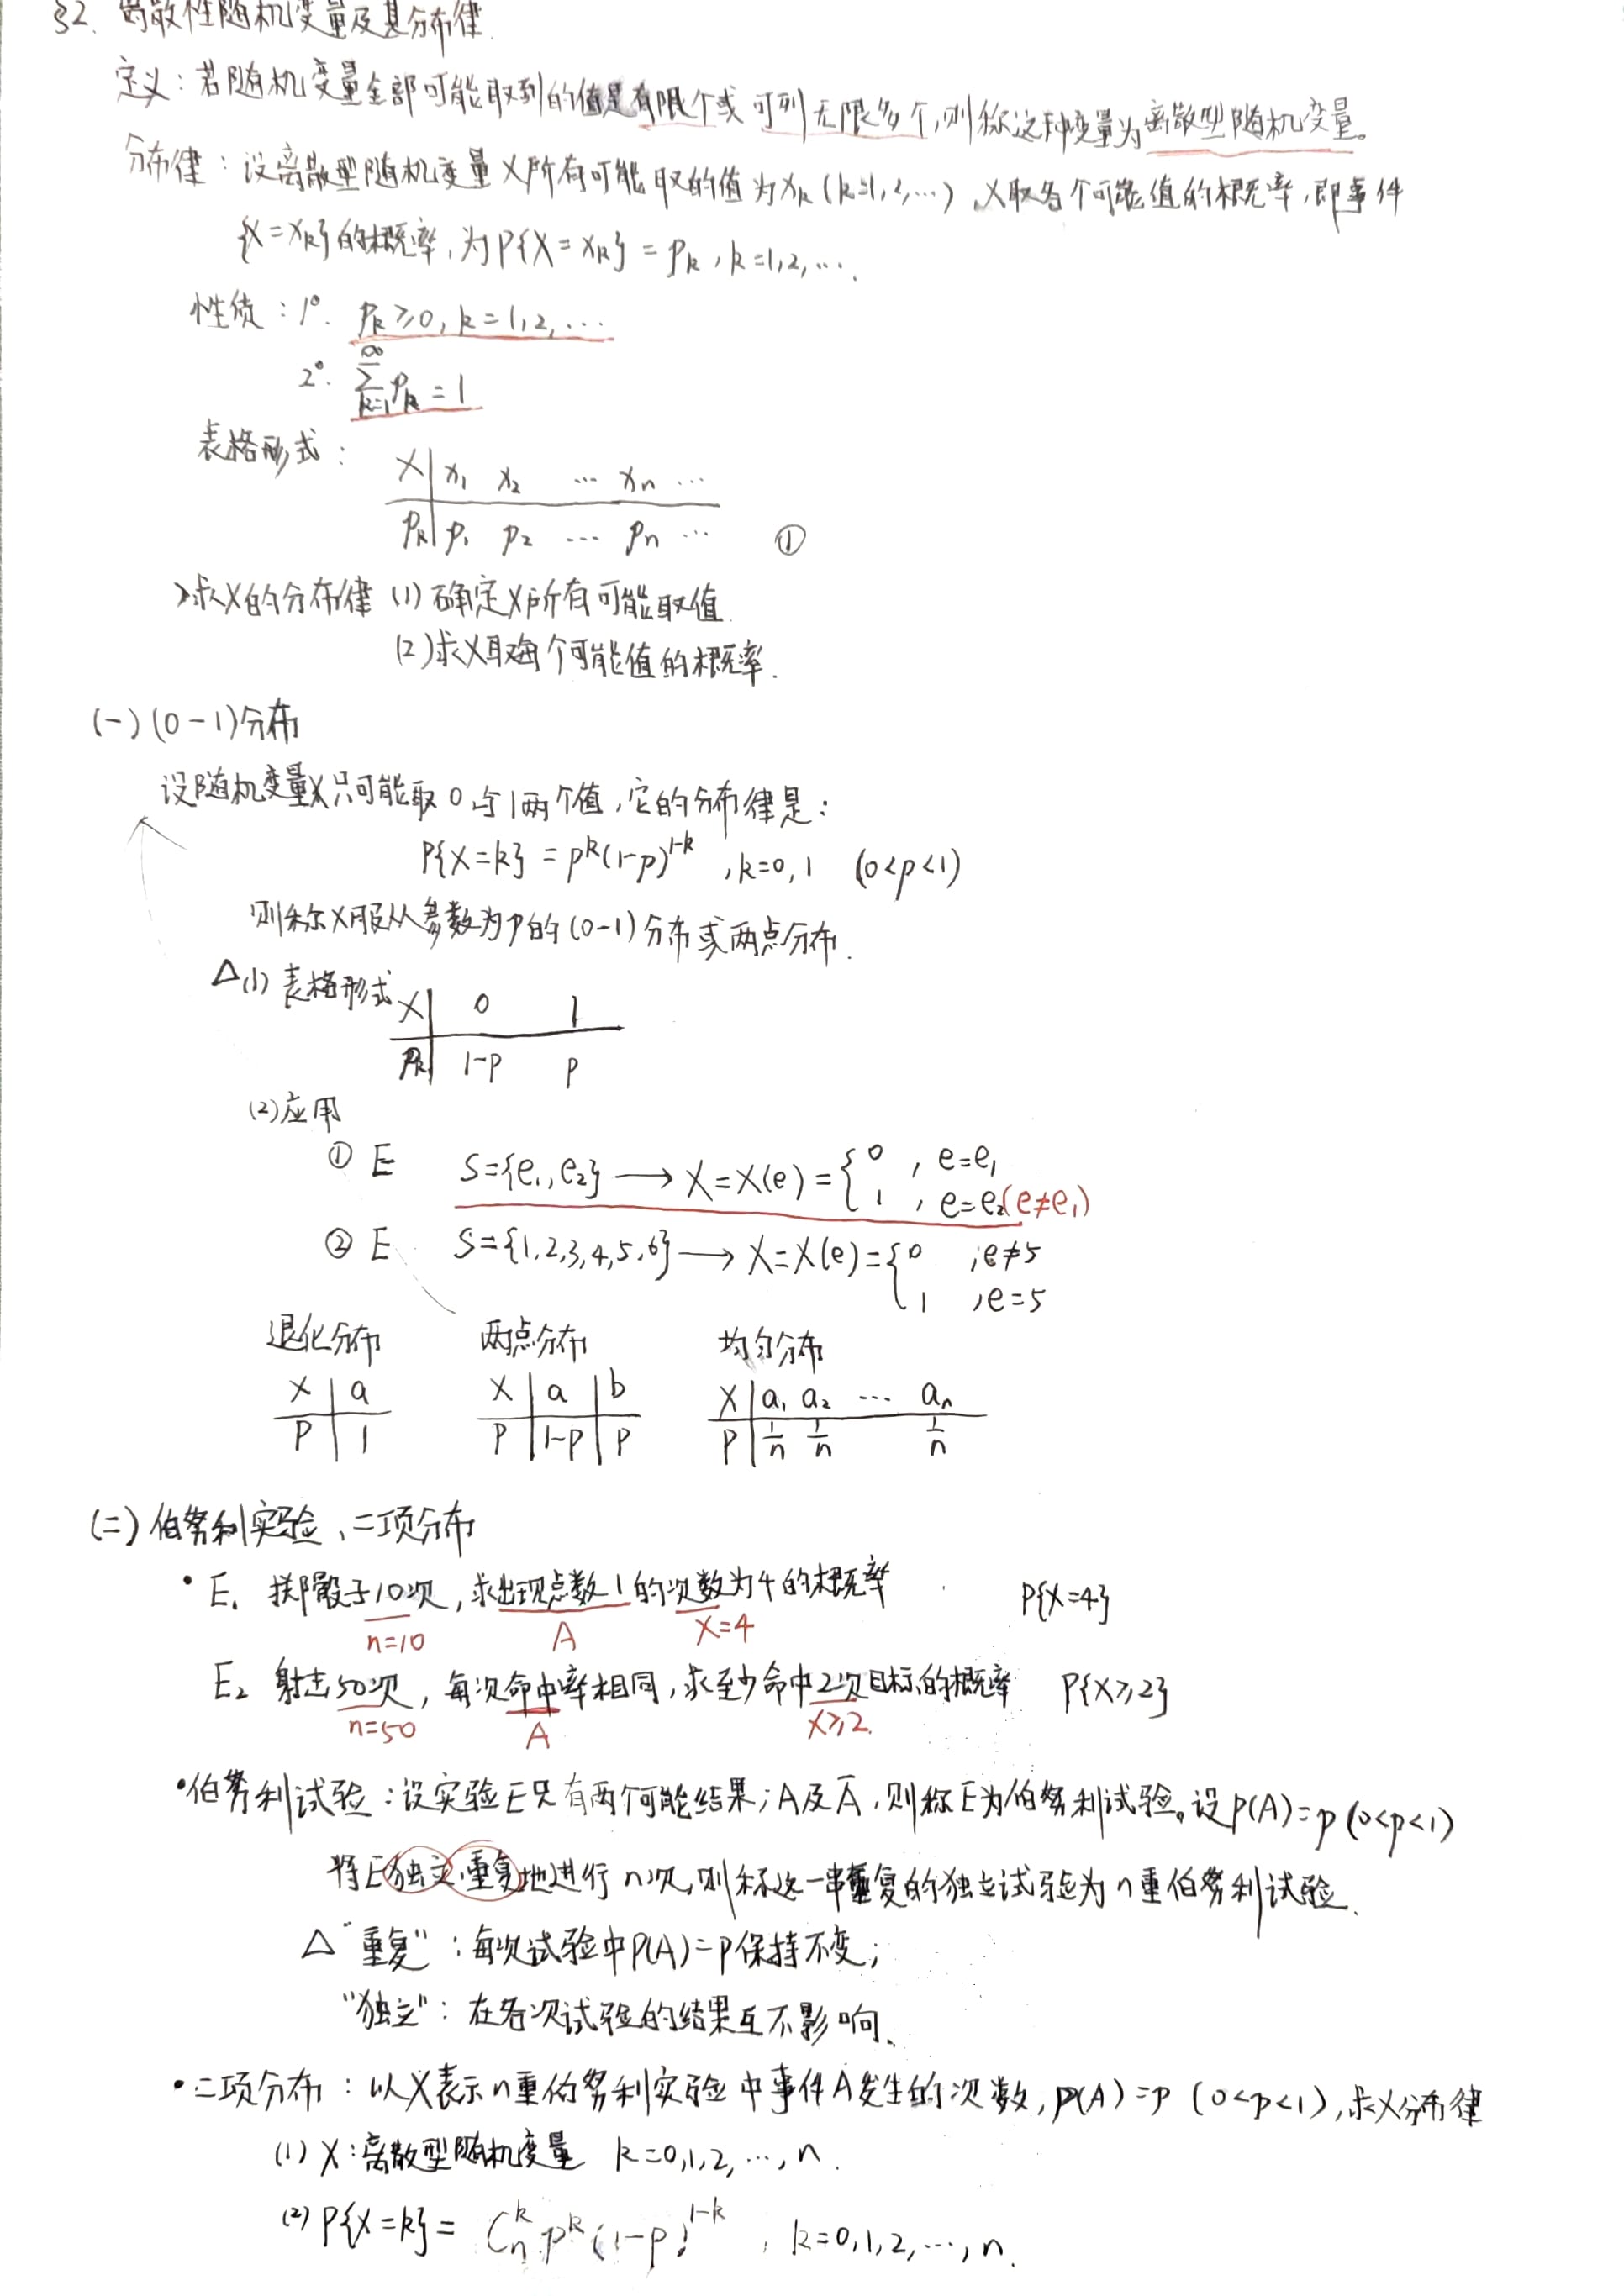 §2. 离散性随机变量及其分布律.
定义：若随机变量全部可能取到的值是有限个或可列无限多个，则称这种变量为离散型随机变量。
分布律：设离散型随机变量X所有可能取的值为xₖ(k=1,2,…)，X取各个可能值的概率，即事件
{X=xₖ}的概率，为P{X=xₖ}=pₖ，k=1,2,….
性质：1°. pₖ≥0, k=1,2,…
2°. ∑_{k=1}^{∞} pₖ=1
表格形式：
X | x₁ x₂ … xₙ …
pₖ | p₁ p₂ … pₙ … ①
>求X的分布律 (1)确定X所有可能取值.
(2)求X取每个可能值的概率.
(一)(0-1)分布
设随机变量X只可能取0与1两个值，它的分布律是：
P{X=k}=p^k(1-p)^{1-k}, k=0,1 (0<p<1)
则称X服从参数为p的(0-1)分布或两点分布.
△(1) 表格形式
X | 0 1
pₖ | 1-p p
(2)应用
① E S={e₁,e₂}→X=X(e)={0, e=e₁
1, e=e₂(e≠e₁)
② E S={1,2,3,4,5,6}→X=X(e)={0, e≠5
1, e=5
退化分布 两点分布 均匀分布
X | a X | a | b X | a₁ a₂ … aₙ
P | 1 P | 1-p | p P | 1/n 1/n 1/n
(二)伯努利实验、二项分布
• E₁ 掷骰子10次，求出现点数1的次数为4的概率 P{X=4}
n=10 A X=4
E₂ 射击50次，每次命中率相同，求至少命中2次目标的概率 P{X≥2}
n=50 A X≥2.
•伯努利试验：设实验E只有两个可能结果；A及Ā，则称E为伯努利试验。设P(A)=p(0<p<1)
将E独立重复地进行n次，则称这一串重复的独立试验为n重伯努利试验.
△“重复”：每次试验中P(A)=p保持不变；
“独立”：在各次试验的结果互不影响.
•二项分布：以X表示n重伯努利实验中事件A发生的次数，P(A)=p (0<p<1)，求X分布律
(1) X：离散型随机变量 k=0,1,2,…,n.
(2) P{X=k}= Cₙ^k p^k(1-p)^{1-k}, k=0,1,2,…,n.